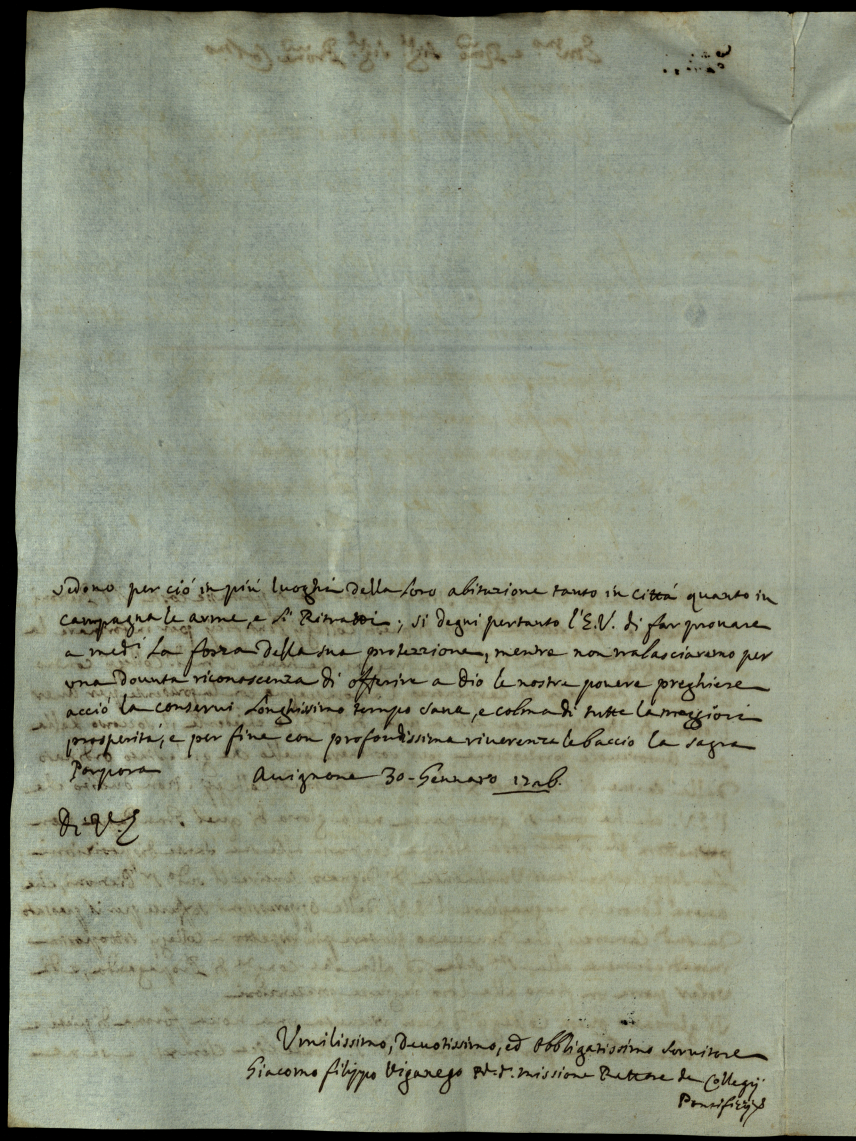 vedono per ciò in più luoghi della loro abitazione tanto in città quanto in
campagna le arme, e li Ritratti; si degni pertanto l'E.V. di far provare
a med.i la forza della sua protezzione, mentre non tralasciaremo per
una dovuta riconoscenza di offerire a Dio le nostre povere preghiere
acciò la conservi longhissimo tempo sana, e colma di tutte le maggiori
prosperità, e per fine con profondissima riverenza le baccio la sagra
Porpora Avignone 30 Gennaro
Umilissimo, Devotissimo, ed obbligatissimo servitore
Giacomo filippo Viganego missione Rettore de Collegij
Pontificij